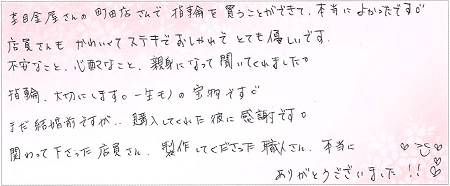 杢目金屋さんの町田店さんで指輪を買うことができて、本当によかったです。
店員さんもかわいくてステキでおしゃれでとても優しいです。
不安なこと、心配なこと、親身になって聞いてくれました。
指輪、大切にします。一生モノの宝物です。
まだ結婚前ですが、購入してくれた彼に感謝です。
関わって下さった店員さん、製作してくださった職人さん、本当に
ありがとうございました!!